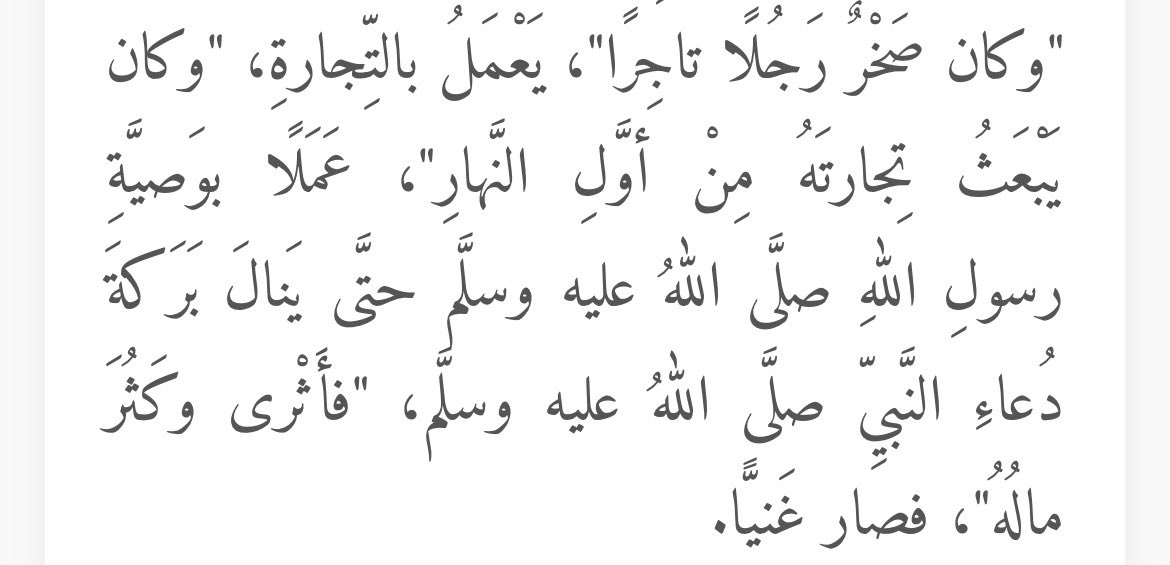 "وكان صَخْرٌ رَجُلًا تاجِرًا"، يَعْمَلُ بالتِّجارةِ، "وكان
يَبْعَثُ تِجارتَهُ مِنْ أوَّلِ النَّهارِ"، عَمَلًا بوَصيَّةِ
رسولِ اللهِ صلَّى اللهُ عليه وسلَّم حتَّى يَنالَ بَرَكةَ
دُعاءِ النَّبيِّ صلَّى اللهُ عليه وسلَّم، "فأَثْرى وكَثُرَ
مالُهُ"، فصار غَنيًّا.